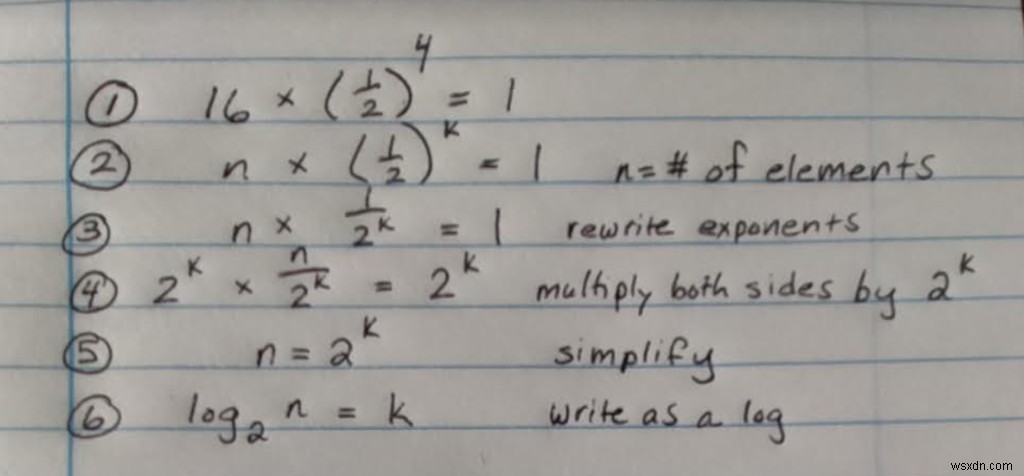 ① 16 × (1/2)^4 = 1
② n × (1/2)^k = 1 n = # of elements
③ n × 1/2^k = 1 rewrite exponents
④ 2^k × n/2^k = 2^k multiply both sides by 2^k
⑤ n = 2^k simplify
⑥ log₂ n = k write as a log
wsxdn.com